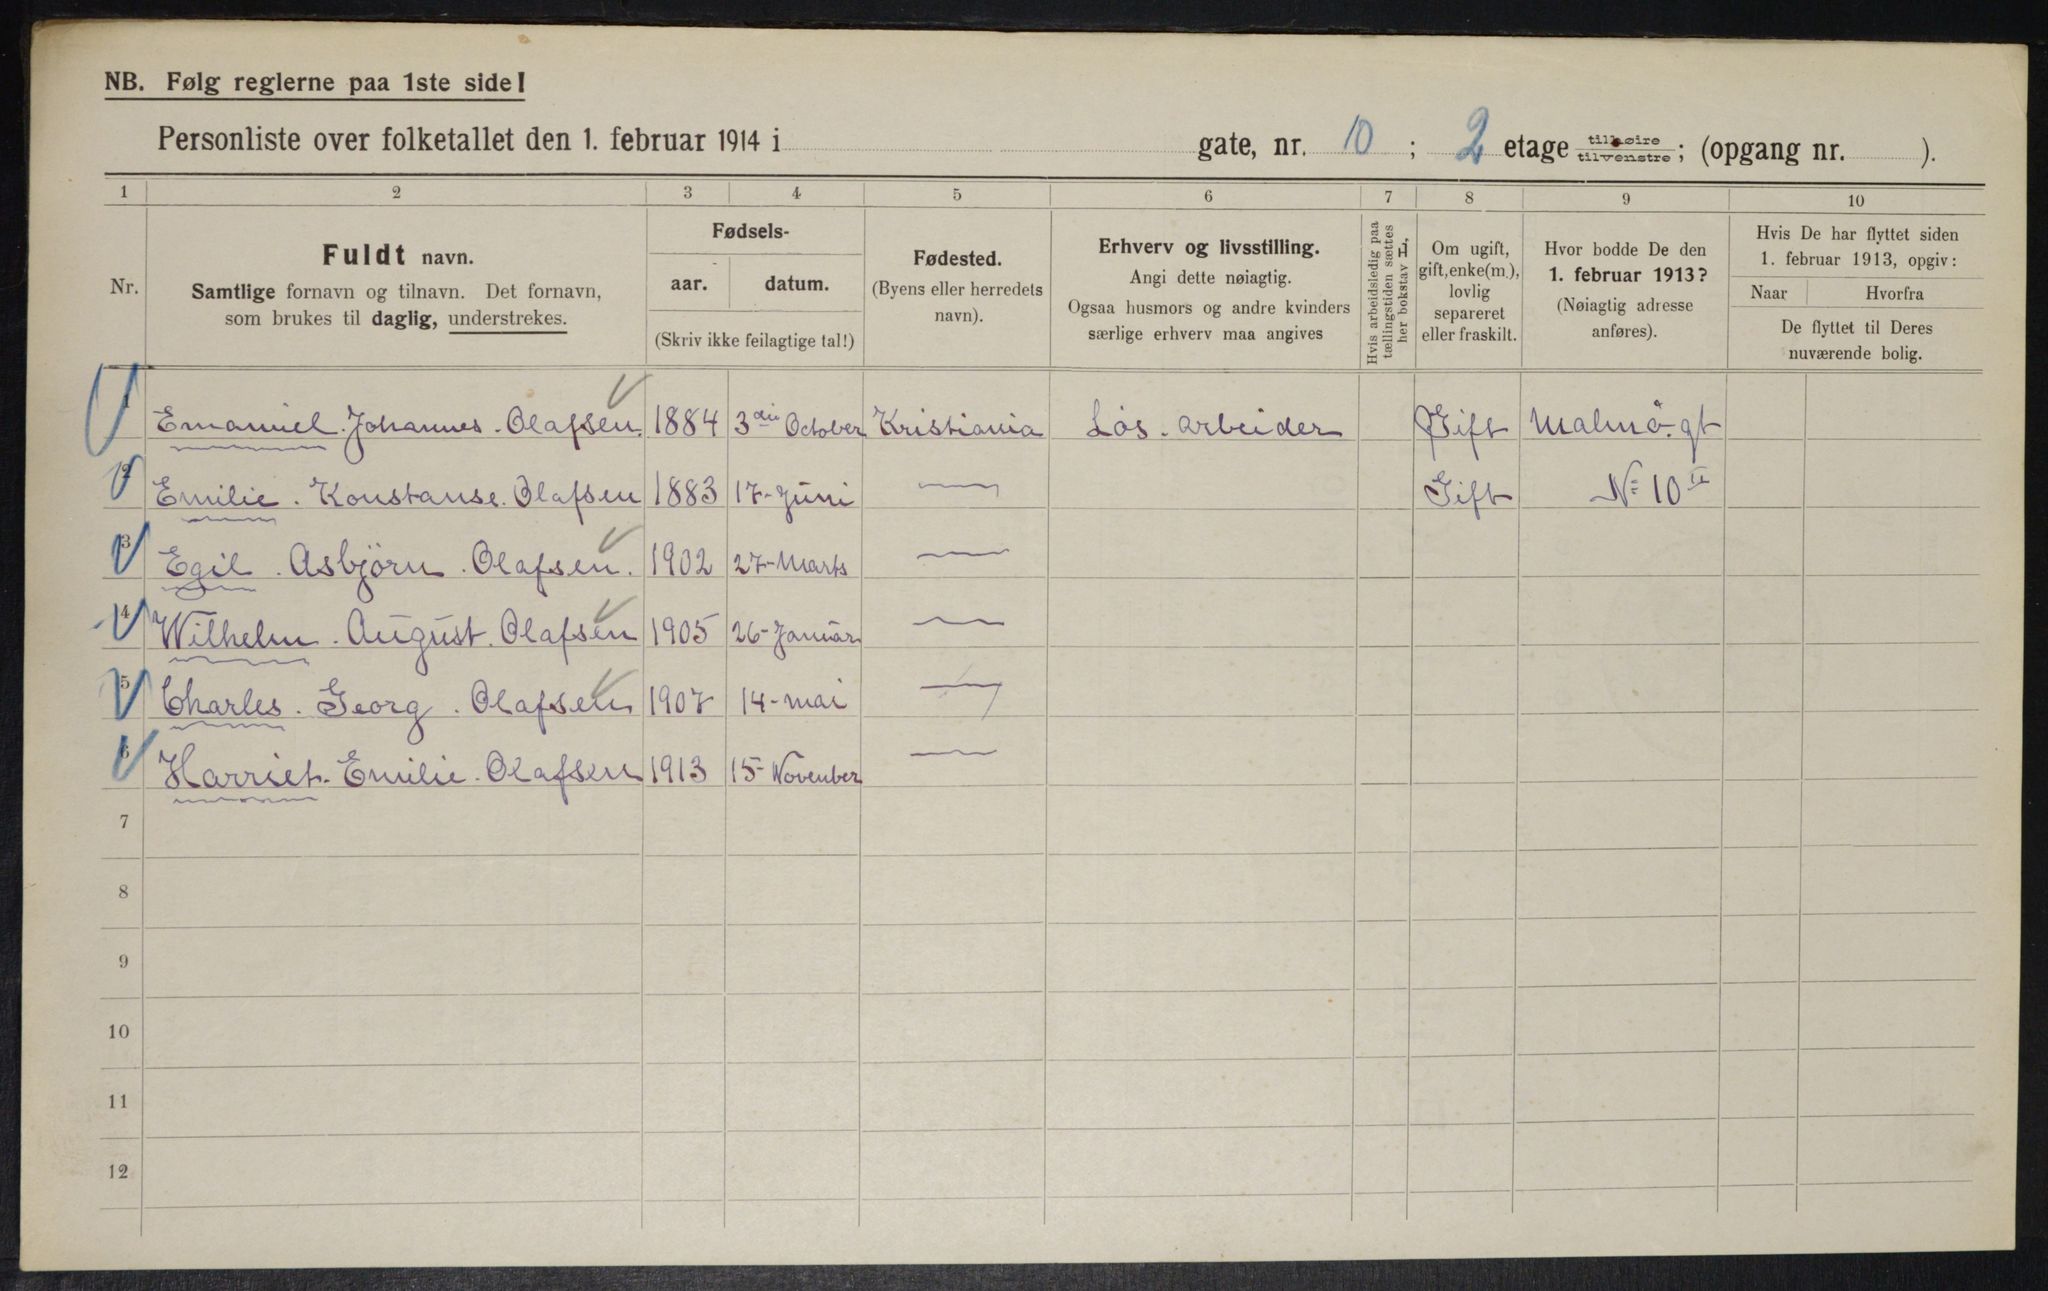 NB. Følg reglerne paa 1ste side!
Personliste over folketallet den 1. februar 1914 i gate, nr. 10 ; 2 etage tilhøire tilvenstre; (opgang nr. ).
1 2 3 4 5 6 7 8 9 10
Nr.
Fuldt navn.
Samtlige fornavn og tilnavn. Det fornavn,
som brukes til daglig, understrekes.
Fødsels-
aar. datum.
(Skriv ikke feilagtige tal!)
Fødested.
(Byens eller herredets
navn).
Erhverv og livsstilling.
Angi dette nøiagtig.
Ogsaa husmors og andre kvinders
særlige erhverv maa angives
Hvis arbeidsledig paa
tællingstiden sættes
her bokstav L.
Om ugift,
gift, enke(m.),
lovlig
separeret
eller fraskilt.
Hvor bodde De den
1. februar 1913?
(Nøiagtig adresse
anføres).
Hvis De har flyttet siden
1. februar 1913, opgiv:
Naar Hvorfra
De flyttet til Deres
nuværende bolig.
1 Emanuel. Johannes. Olafsen. 1884 3die October Kristiania Løs. arbeider Gift Malmö. gt
2 Emilie. Konstanse. Olafsen 1883 17-Juni — Gift No 10 II
3 Egil. Asbjörn. Olafsen. 1902 27-Marts —
4 Wilhelm. August. Olafsen 1905 26-Januar —
5 Charles. Georg. Olafsen 1907 14-mai —
6 Harriet. Emilie. Olafsen 1913 15-November —
7
8
9
10
11
12